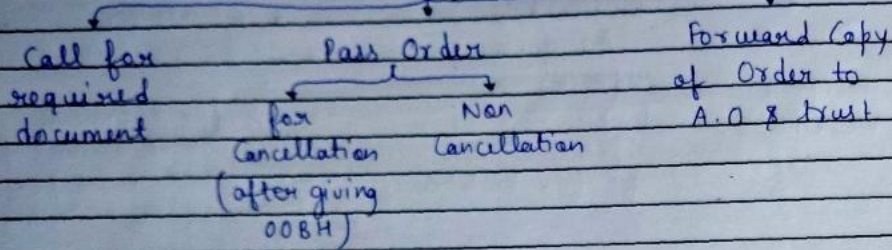 Call for
required
document
Pass Order
for
Cancellation
(after giving
OOBH)
Non
Cancellation
Forward Copy
of Order to
A.O & trust